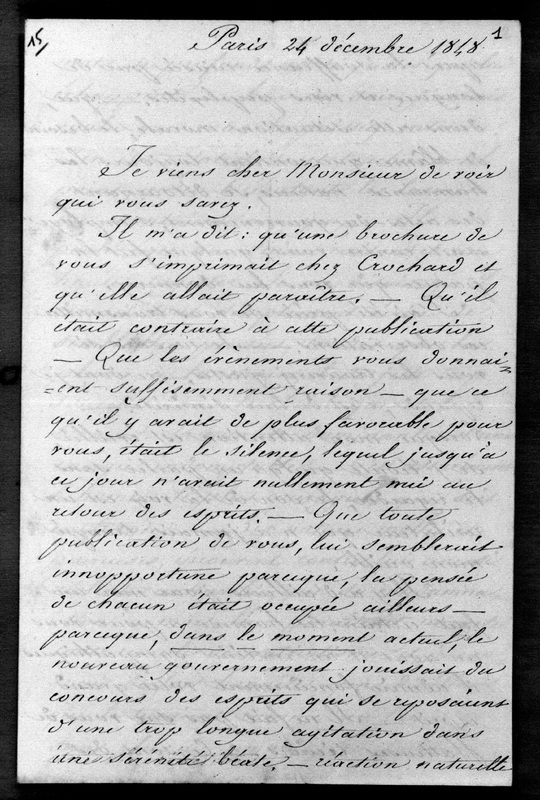 15/
Paris 24 décembre 1848
1
Je viens cher Monsieur de voir
qui vous savez.
Il m'a dit: qu'une brochure de
vous s'imprimait chez Crochard et
qu'elle allait paraître. — Qu'il
était contraire à cette publication
— Que les évènements vous donnai=
=ent suffisemment raison — que ce
qu'il y avait de plus favorable pour
vous, était le silence, lequel jusqu'à
ce jour n'avait nullement nui au
retour des esprits. — Que toute
publication de vous, lui semblerait
innopportune parceque, la pensée
de chacun était occupée ailleurs —
parceque, dans le moment actuel, le
nouveau gouvernement jouissait du
concours des esprits qui se reposaient
d'une trop longue agitation dans
une sérénité béate. — réaction naturelle